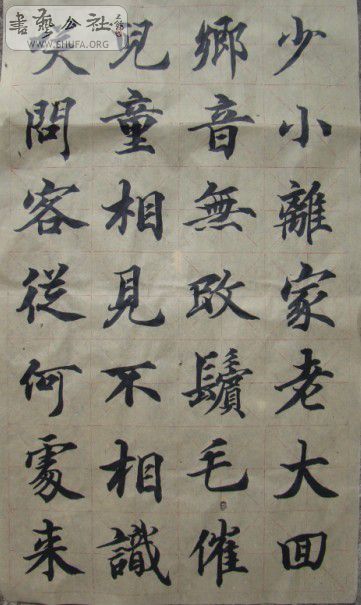 少小離家老大回
鄉音無改鬢毛催
兒童相見不相識
笑問客從何處来
書藝公社
WWW.SHUFA.ORG